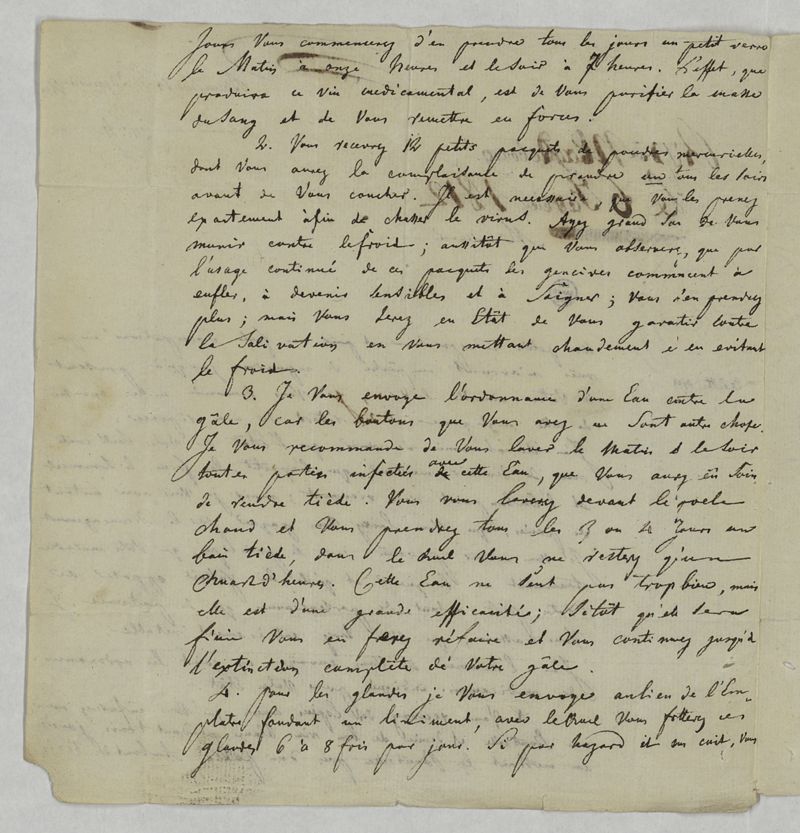 Jours Vous commencerez d'en prendre tous les jours un petit verre
le Matin à onze heures et le Soir à 7 heures. L'effet, que
produira ce vin medicamental, est de Vous purifier la masse
du Sang et de Vous remettre en forces.
2. Vous recevrez 12 petits pacquets de poudres mercurielles,
dont Vous aurez la complaisance de prendre un tous les Soirs
avant de Vous coucher. Il est necessaire, que Vous les prenez
exactement àfin de chasser le virus. Ayez grand Soin de Vous
munir contre le froid; aussitôt que Vous observerez, que par
l'usage continué de ces pacquets les gencives commencent à
enfler, à devenir sensibles et à Saigner; Vous n'en prendrez
plus; mais Vous Serez en Etât de Vous garatir contre
la Salivation en Vous mettant chaudement è en evitant
le froid.
3. Je Vous envoye l'ordonnance d'une Eau contre la
gâle, car les boutons que Vous avez ne Sont autre chose.
Je Vous recommande de Vous laver le Matin & le Soir
toutes parties infectées avec cette Eau, que Vous aurez Soin
de rendre tiède. Vous vous laverez devant le poele
chaud et Vous prendrez tous les 3 ou 4 Jours un
bain tiède, dans le quel Vous ne resterez qu'un
Quart d'heures. Cette Eau ne Sent pas trop bien, mais
elle est d'une grande efficacitée; Sitôt qu'elle Sera
finie Vous en ferez réfaire et Vous continuez jusqu'à
l'extinction complète de Votre gâle.
4. pour les glandes je Vous envoye au lieu de l'Em-
platre fondant un liniment, avec le quel Vous frotterez ces
glandes 6 à 8 fois par jour. Si par hazard il cuit, Vous